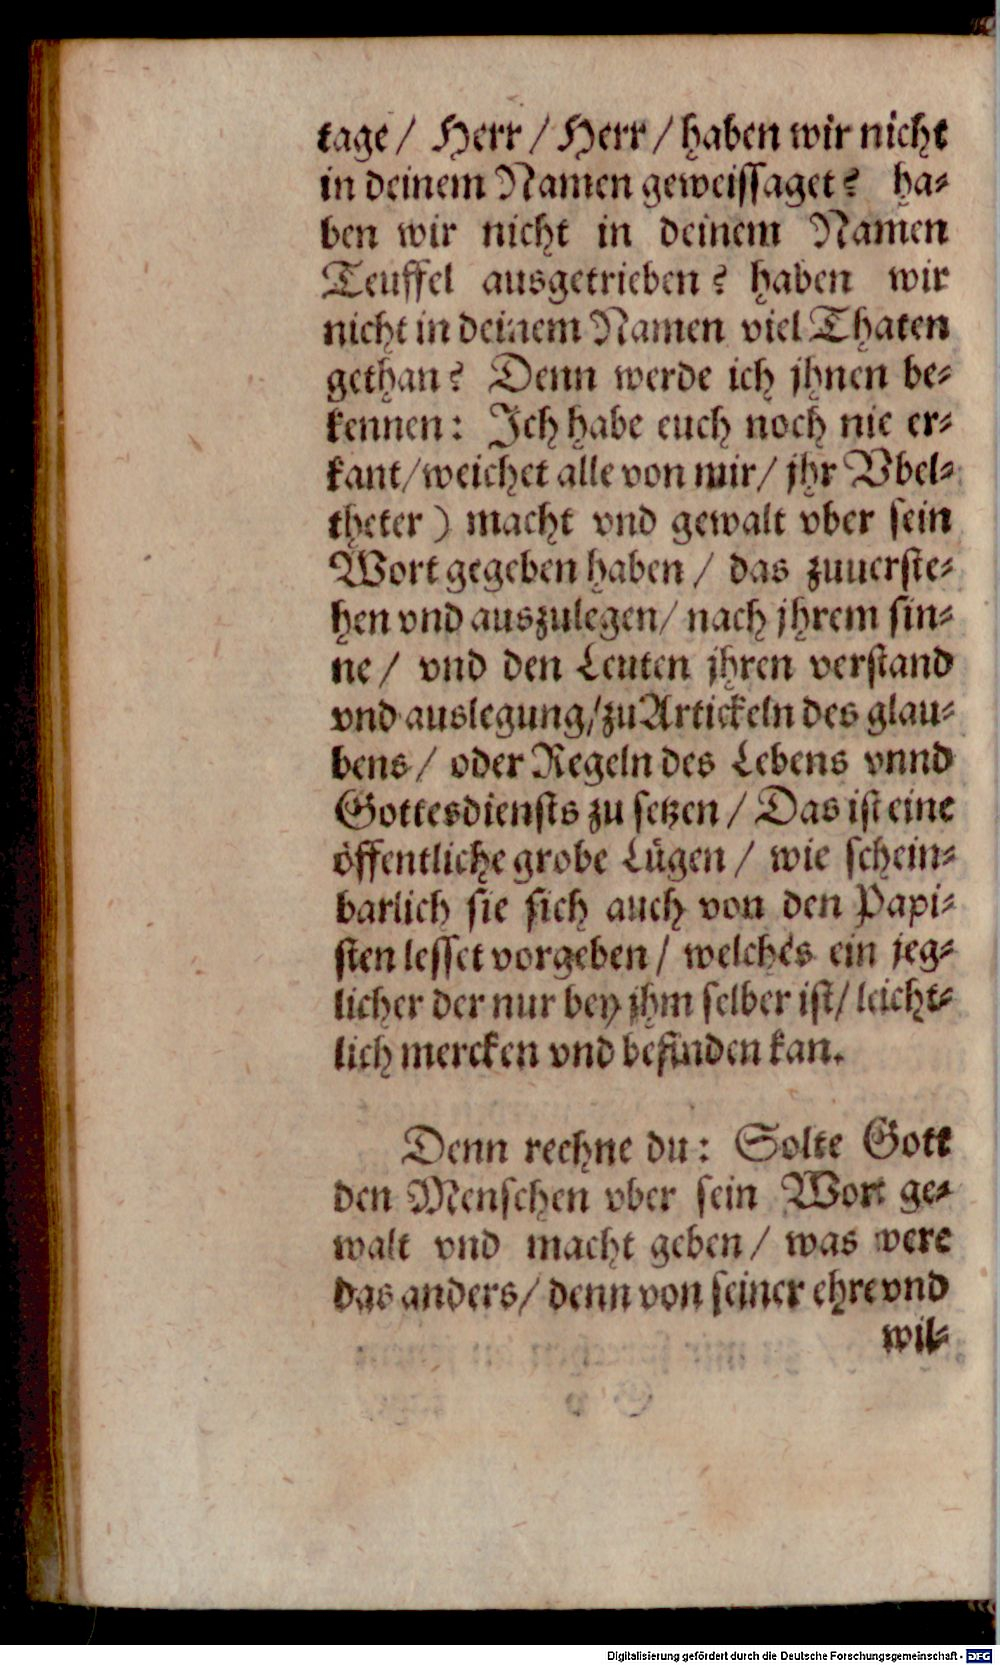 tage/ Herr/ Herr/ haben wir nicht
in deinem Namen geweissaget? ha⸗
ben wir nicht in deinem Namen
Teuffel ausgetrieben? haben wir
nicht in deinem Namen viel Thaten
gethan? Denn werde ich jhnen be⸗
kennen: Ich habe euch noch nie er⸗
kant/ weichet alle von mir/ jhr Vbel⸗
theter) macht vnd gewalt vber sein
Wort gegeben haben/ das zuuerste⸗
hen vnd auszulegen/ nach jhrem sin⸗
ne/ vnd den Leuten jhren verstand
vnd auslegung/ zu Artickeln des glau⸗
bens/ oder Regeln des Lebens vnnd
Gottesdiensts zu setzen/ Das ist eine
öffentliche grobe Lügen/ wie schein⸗
barlich sie sich auch von den Papi⸗
sten lesset vorgeben/ welches ein jeg⸗
licher der nur bey jhm selber ist/ leicht⸗
lich mercken vnd befinden kan.
Denn rechne du: Solte Gott
den Menschen vber sein Wort ge⸗
walt vnd macht geben/ was were
das anders/ denn von seiner ehre vnd
wil⸗
Digitalisierung gefördert durch die Deutsche Forschungsgemeinschaft - DFG